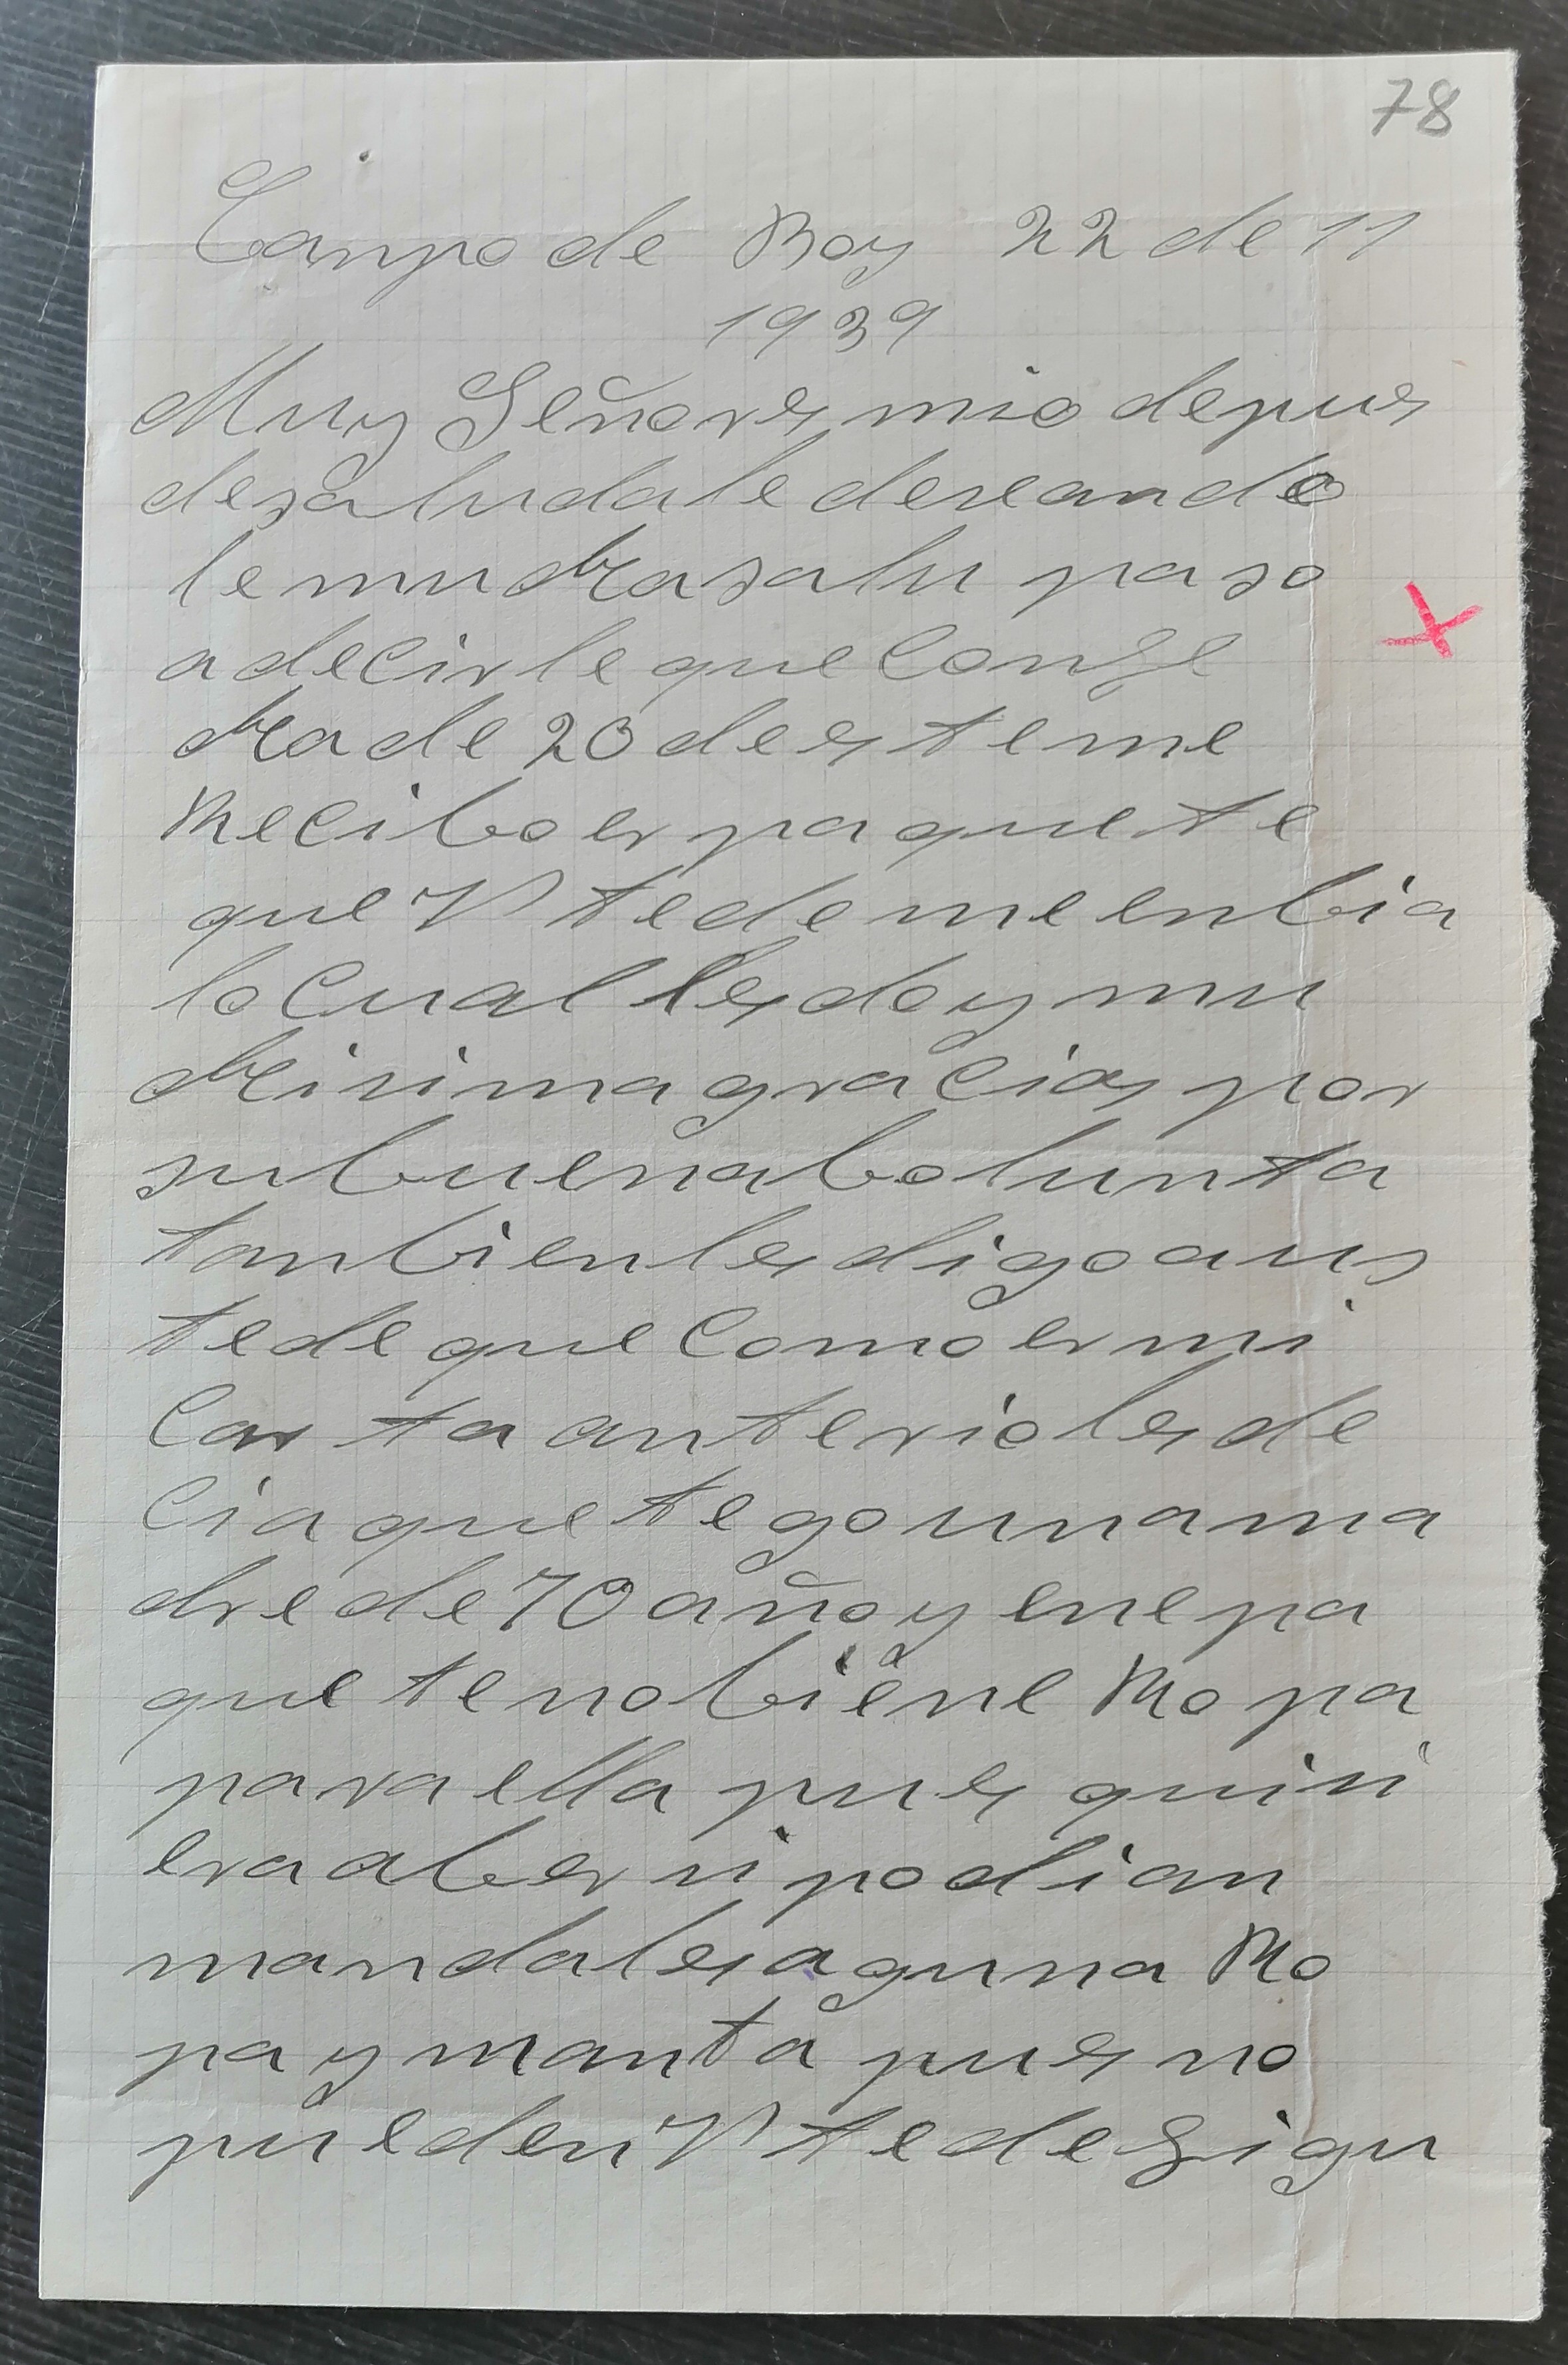 78
Campo de Boy 22 de 11
1939
Muy Señores mio depues
desaludale deseando
le muchasalu paso
a decirle que Confe
cha de 20 de este me
Recibo er paquete
que Ustede me enbia
lo Cual les doy mu
chisima gracias por
su buena bolunta
tanbien les digo aus
tede que Como er mi
Carta anterio les de
Cia que tego una ma
dre de 70 año y ene pa
quete no biene Ropa
para ella pues quisi
era aber si podian
mandales aguna Ro
pa y manta pues no
pueden Ustede Figu